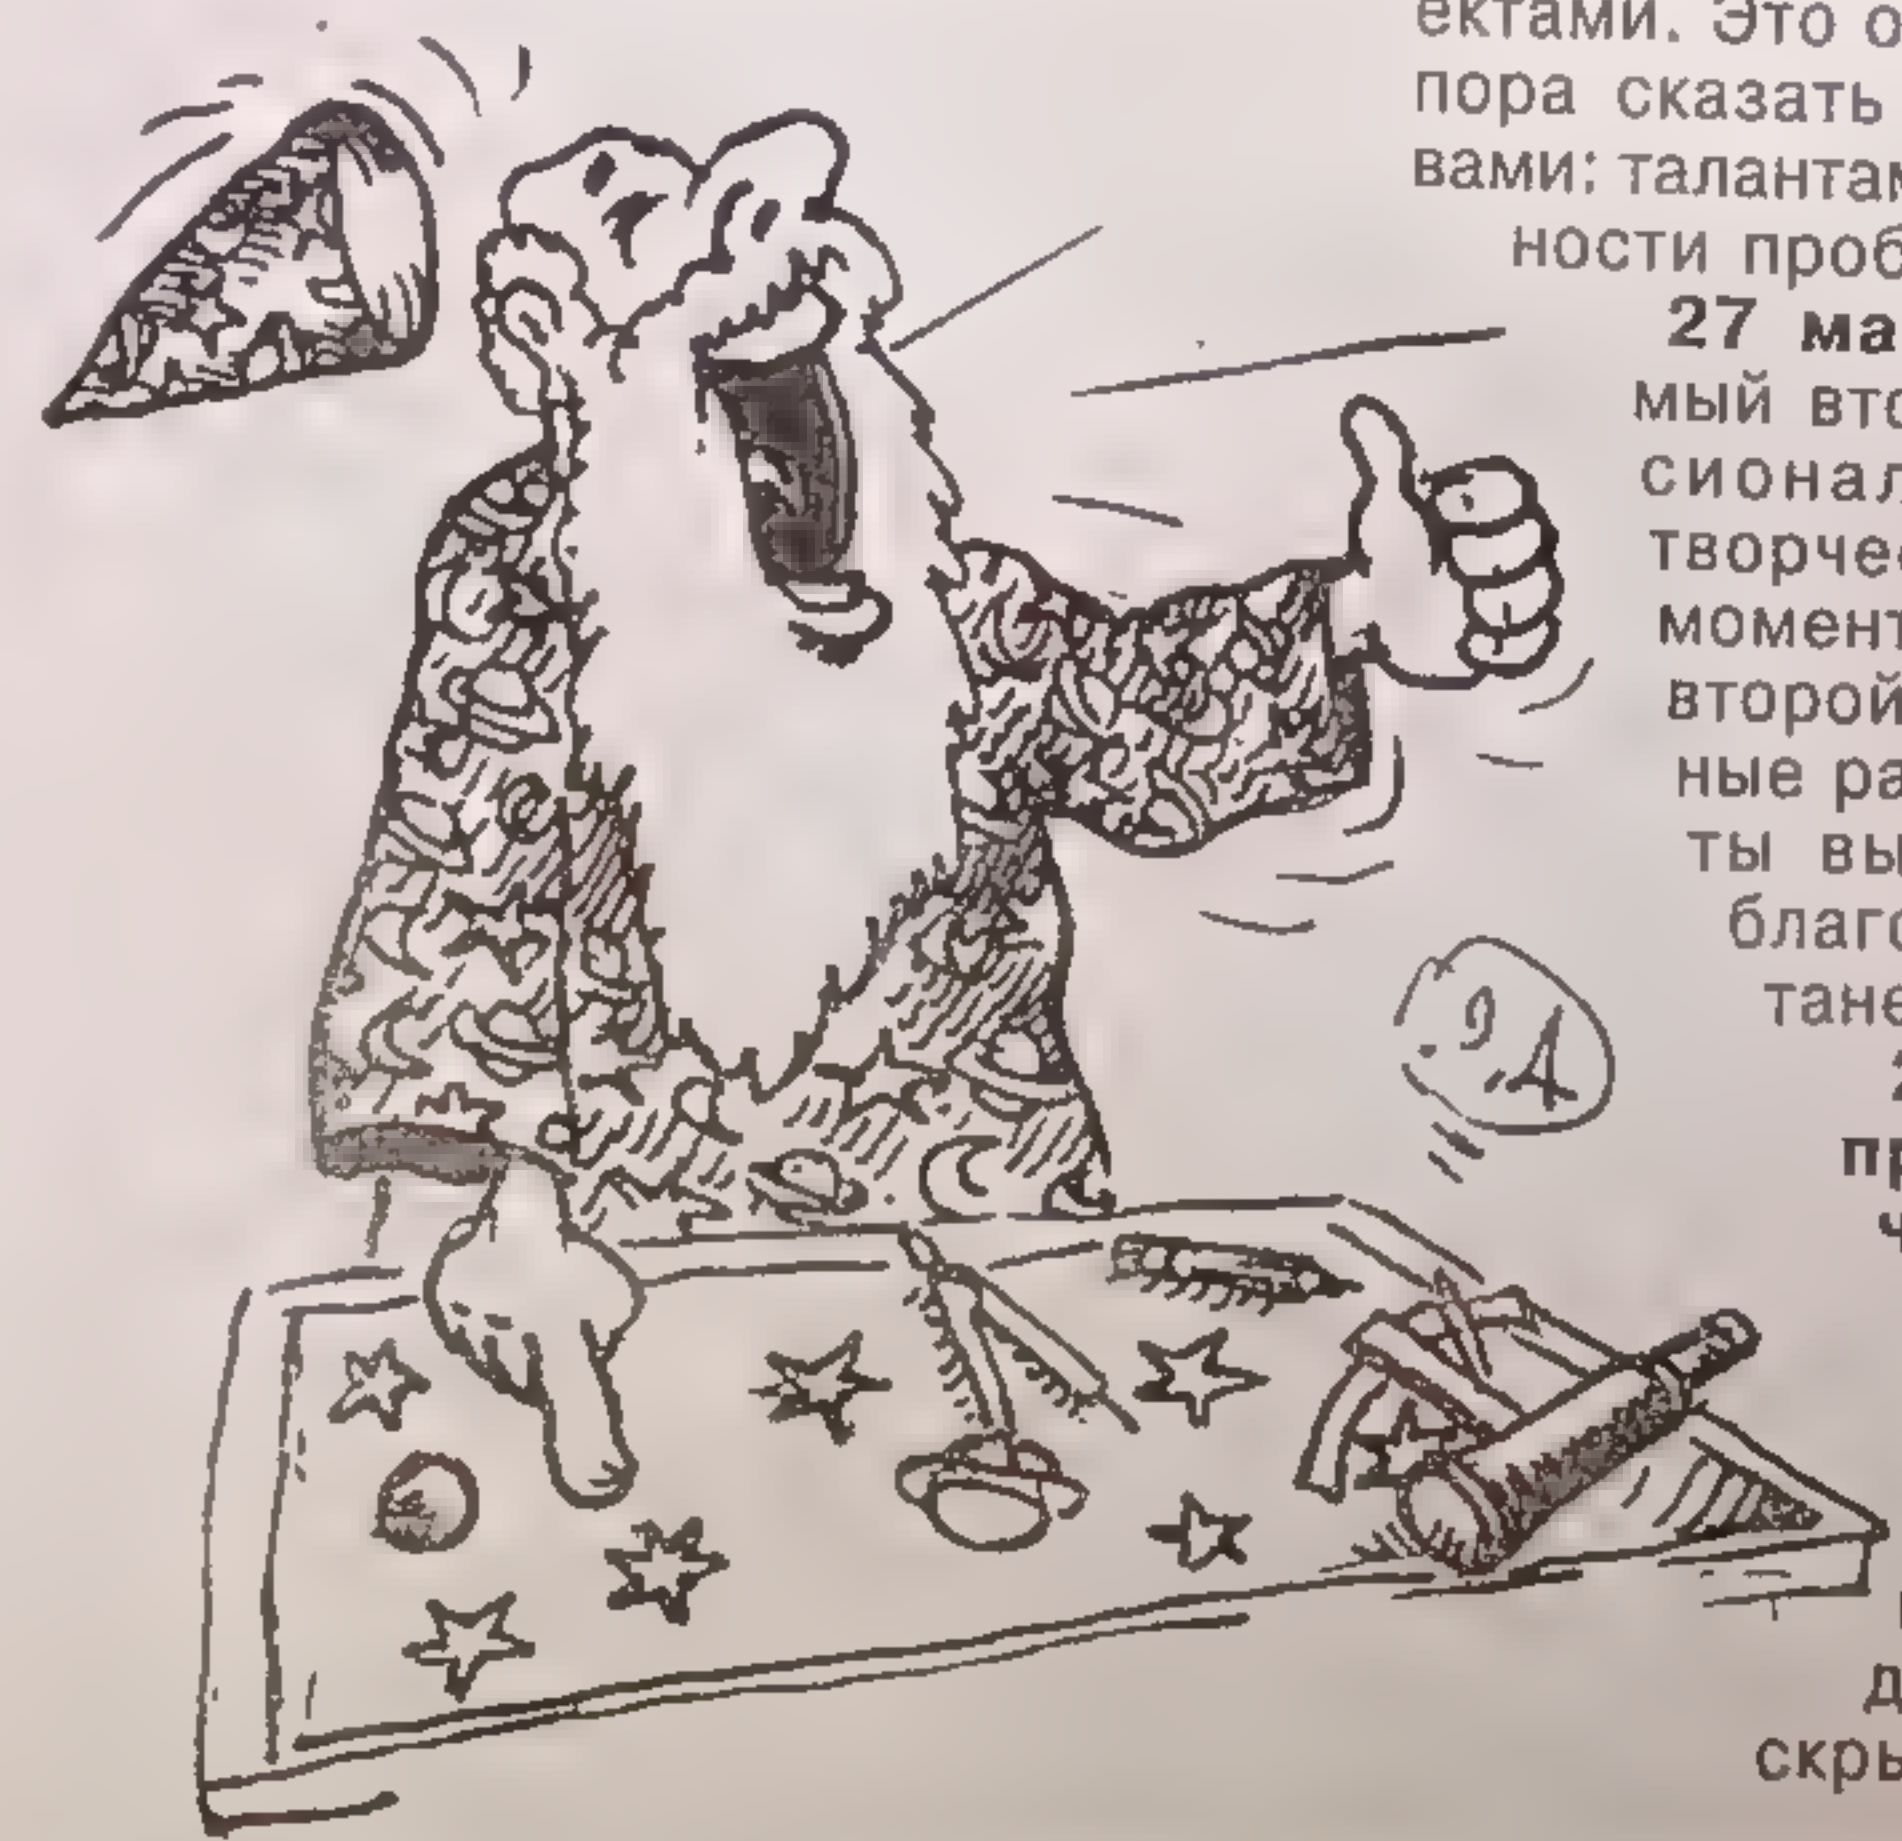 ектами. Это о
пора сказать
вами: талантам
ности проб
27 ма
мый вто
сионал
творчес
момент
второй
ные ра
ты вы
благо
тане
2
пр
ч
Э.А
д
скры